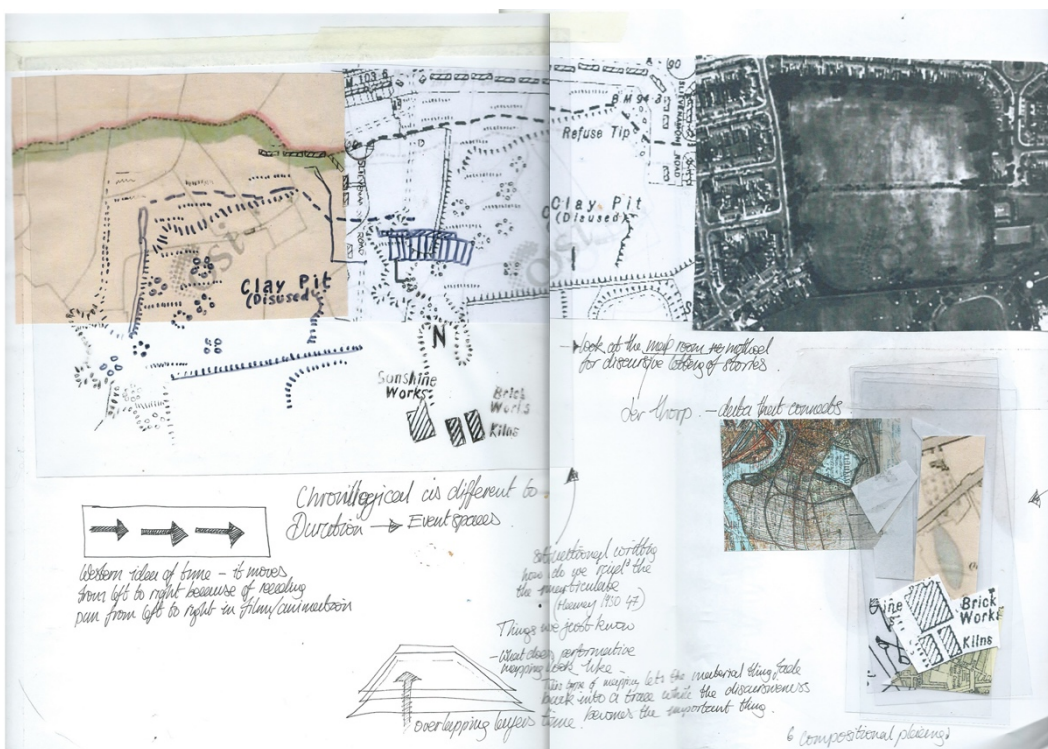 M 103 6
90
B M 94 3
Refuse Tip
SLIEVENAMON
ROAD
SLIEVENAMON ROAD
Clay Pit
(Disused)
Clay Pit
(Disused)
osi
N
Sunshine
Works
Brick
Works
Kilns
look at the map room method
for discursive telling of stories.
Jer Thorp. - data that connects
Chronological is different to
Duration → Event spaces.
Western idea of time - it moves
from left to right because of reading
pan from left to right in film/animation
Situational writing
how do we the
the inarticulate
47)
Things we just know
- What does performative
mapping look like
This type of mapping lets the material thing fade
back into a trace while the discursiveness
becomes the important thing.
overlapping layers time
Brick
Works
Kilns
compositional